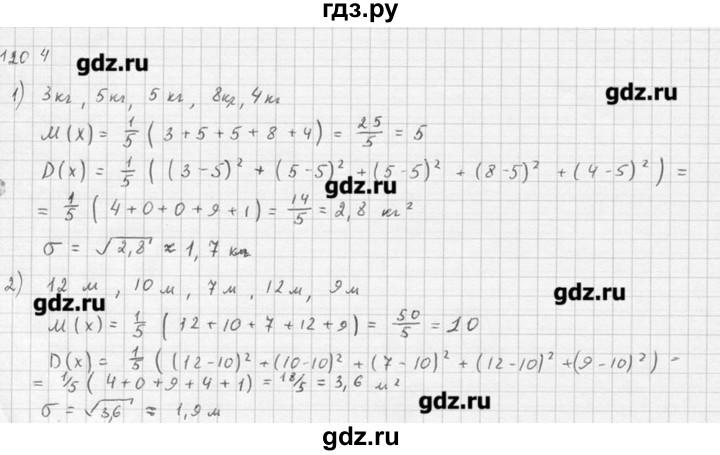 гдз.ру
1204
gdz.ru
1) 3кг, 5кг, 5 кг, 8кг, 4кг
gdz.ru
M(X) = 1/5 (3+5+5+8+4) = 25/5 = 5
D(X) = 1/5 ((3-5)² + (5-5)² + (5-5)² + (8-5)² + (4-5)²) =
gdz.ru
= 1/5 (4+0+0+9+1) = 14/5 = 2,8 кг²
σ = √2,8 ≈ 1,7 кг
2) 12 м, 10 м, 7 м, 12 м, 9 м
gdz.ru
gdz.ru
M(X) = 1/5 (12+10+7+12+9) = 50/5 = 10
D(X) = 1/5 ((12-10)² + (10-10)² + (7-10)² + (12-10)² + (9-10)²) =
= 1/5 (4+0+9+4+1) = 18/5 = 3,6 м²
gdz.ru
σ = √3,6 ≈ 1,9 м
gdz.ru